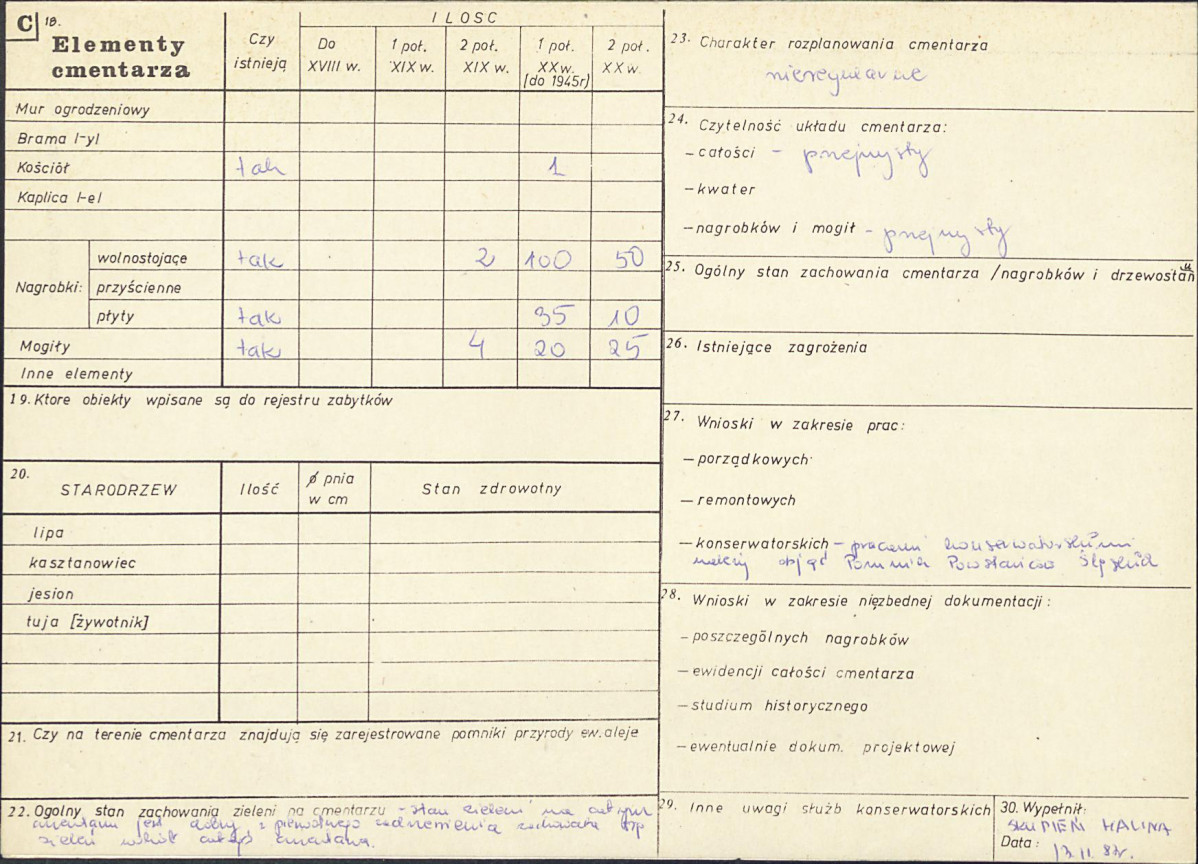 C 18.
Elementy
cmentarza
Czy
istnieją
ILOSC
Do
XVIII w.
1 poł.
XIX w.
2 poł.
XIX w.
1 poł.
XXw.
[do 1945r]
2 poł.
XX w.
Mur ogrodzeniowy
Brama I-yI
Kościół tak 1
Kaplica I-eI
Nagrobki:
wolnostojące tak 2 100 50
przyścienne
płyty tak 35 10
Mogiły tak 4 20 25
Inne elementy
19. Ktore obiekty wpisane są do rejestru zabytków
20.
STARODRZEW
Ilość
ϕ pnia
w cm
Stan zdrowotny
lipa
kasztanowiec
jesion
tuja [żywotnik]
21. Czy na terenie cmentarza znajdują się zarejestrowane pomniki przyrody ew. aleje
22. Ogolny stan zachowania zieleni na cmentarzu - stan zieleni na
cmentarzu jest dobry, z pierwotnego zadrzewienia zachowała się
zieleń wokół cmentarza.
23. Charakter rozplanowania cmentarza
nieregularne
24. Czytelność układu cmentarza:
- całości - przejrzysty
- kwater
- nagrobków i mogił - przejrzysty
25. Ogólny stan zachowania cmentarza /nagrobków i drzewostanu
26. Istniejące zagrożenia
27. Wnioski w zakresie prac:
- porządkowych
- remontowych
- konserwatorskich - pracami konserwatorskimi
należy objąć Pomnik Powstańców Śląskich
28. Wnioski w zakresie niezbędnej dokumentacji:
- poszczególnych nagrobków
- ewidencji całości cmentarza
- studium historycznego
- ewentualnie dokum. projektowej
29. Inne uwagi służb konserwatorskich
30. Wypełnił:
SKUPIEŃ HALINA
Data: